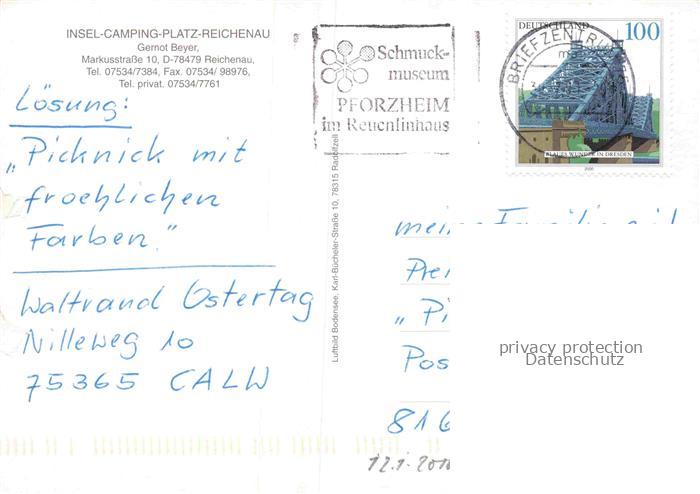 INSEL-CAMPING-PLATZ-REICHENAU
Gernot Beyer,
Markusstraße 10, D-78479 Reichenau,
Tel. 07534/7384, Fax. 07534/ 98976,
Tel. privat. 07534/7761
Lösung:
„Picknick mit
froehlichen
Farben."
Waltraud Ostertag
Nilleweg 10
75365 CALW
Schmuck-
museum
PFORZHEIM
im Reuchlinhaus
Luftbild Bodensee, Karl-Bücheler-Straße 10, 78315 Radolfzell
DEUTSCHLAND 100
BRIEFZENTR
BLAUES WUNDER IN DRESDEN
2000
Prei
„Pi
Pos
816
privacy protection
Datenschutz